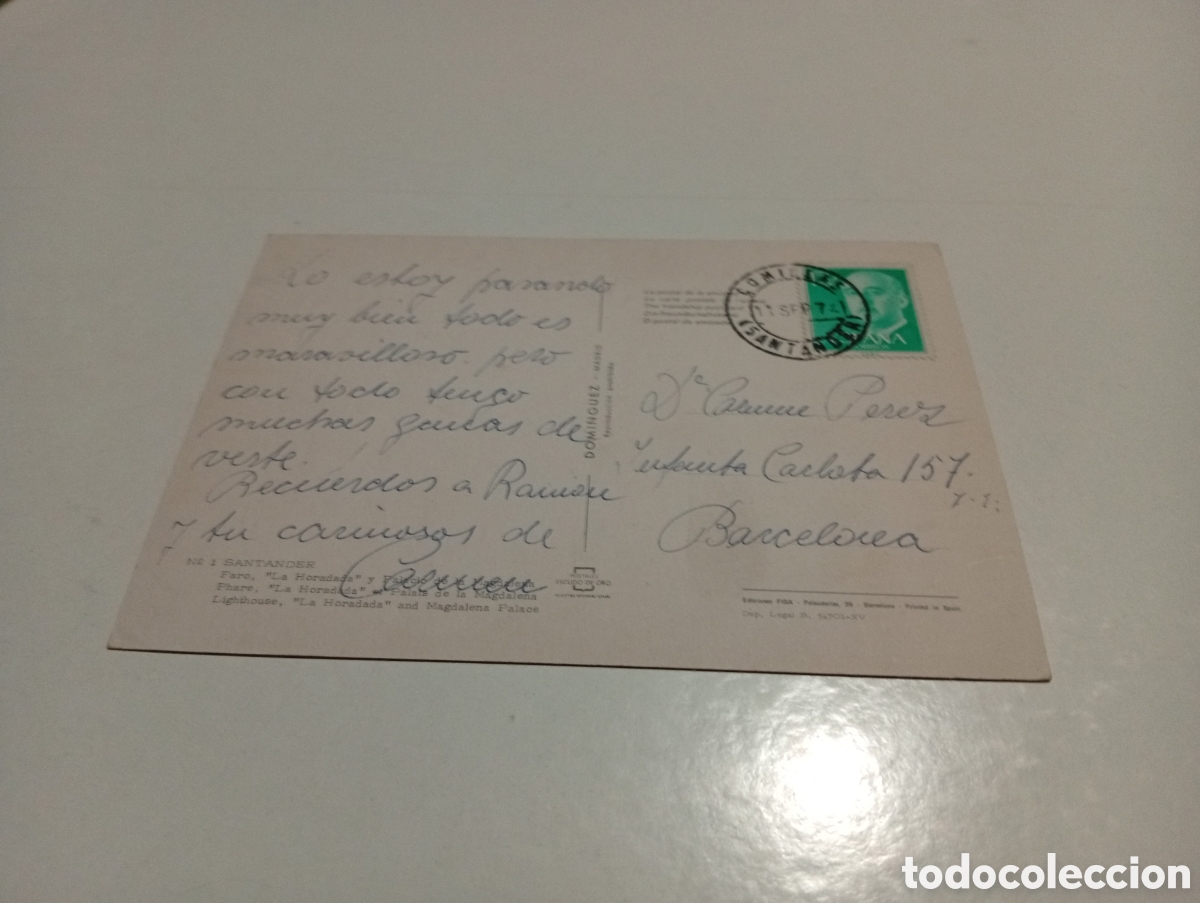 Lo estoy pasando
muy bien todo es
maravilloso. pero
con todo tengo
muchas ganas de
verte.
Recuerdos a Ramon
y tu cariñosos de
Carmen
Nº 1 SANTANDER
Faro, "La Horadada" y Palacio de la Magdalena
Phare, "La Horadada" et Palais de la Magdalena
Lighthouse, "La Horadada" and Magdalena Palace
DOMINGUEZ - MADRID
POSTALES
ESCUDO DE ORO
COMILLAS
11 SEP 74
(SANTANDER)
Dª Carmen Perez
Infanta Carlota 157.
Barcelona
Ediciones FISA - Palaudarias, 26 - Barcelona - Printed in Spain
Dep. Legal B. XV
todocoleccion